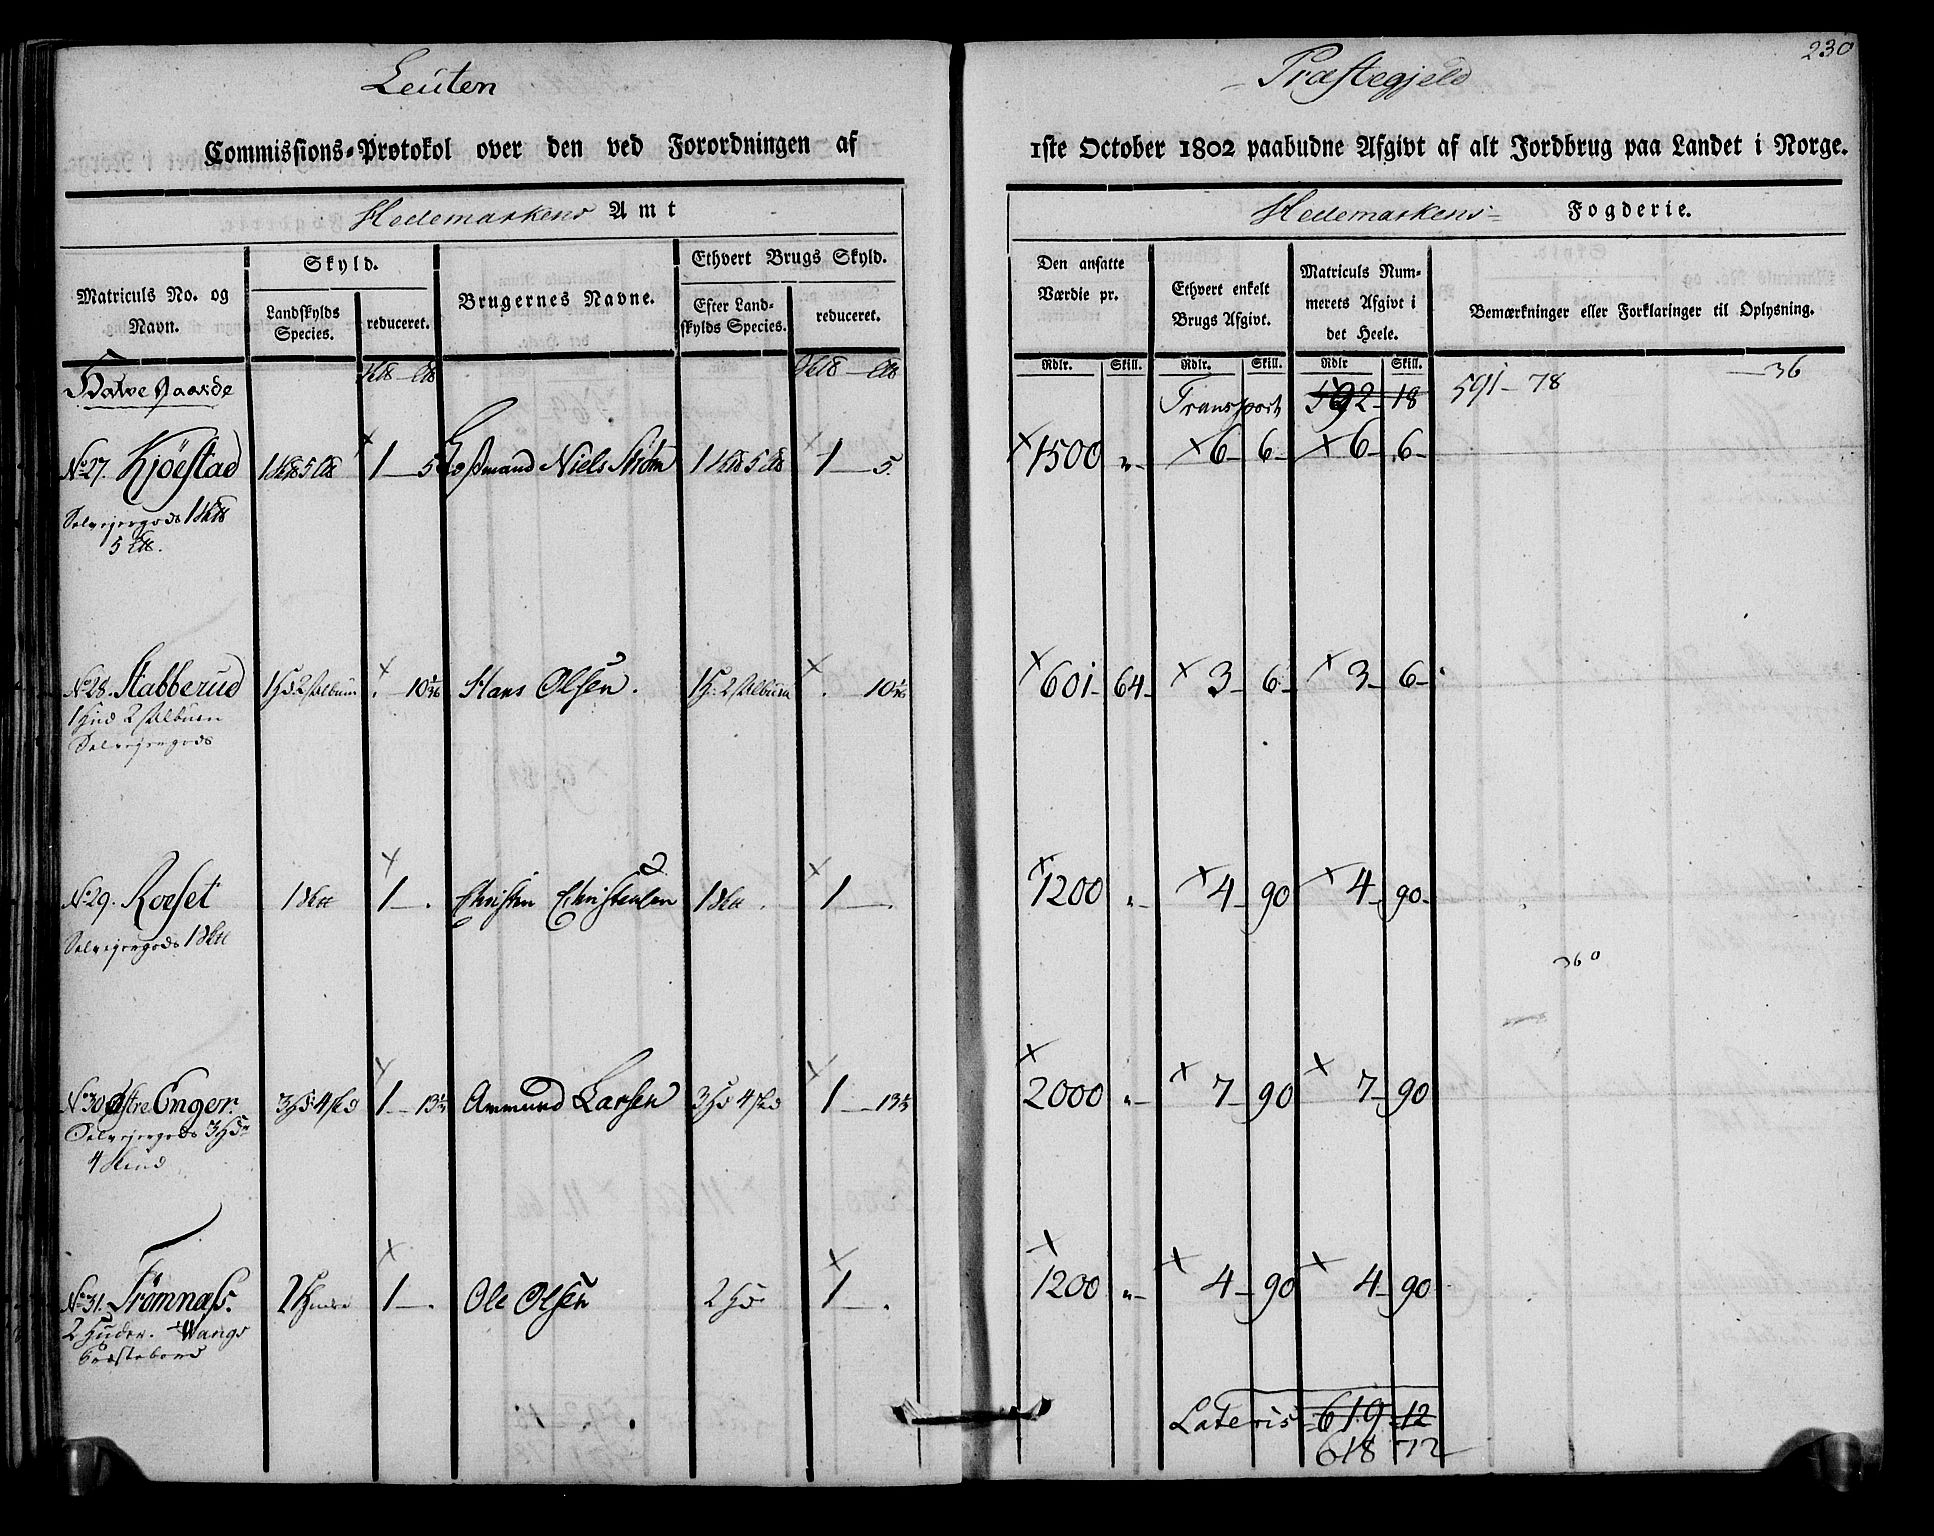 230
Leuten Præstegjeld
Commissions-Protokol over den ved Forordningen af 1ste October 1802 paabudne Afgivt af alt Jordbrug paa Landet i Norge.
Hedemarkens Amt Hedemarkens Fogderie.
Matriculs No. og Navn. Skyld. Landskylds Species. reduceret. Brugernes Navne. Ethvert Brugs Skyld. Efter Landskylds Species. reduceret.
Den ansatte Værdie pr. Ethvert enkelt Brugs Afgivt. Matriculs Nummerets Afgivt i det Heele. Bemærkninger eller Forklaringer til Oplysning.
Rdlr. Skill. Rdlr. Skill. Rdlr Skill.
Halve Gaarde Transport 592 - 18 591 - 78 36
No 27. Kjöestad 1 5 1 - 5 Niels Ström 1 5 1 - 5. 1500 " - 6 6 - 6 - 6 -
Selvejergods 1
5
No 28. Stabberud 1 H 2 Album . 10 Hans Olsen. 1 H 2 Album . 10 601 - 64 - 3 - 6 3 - 6 -
1 Hud 2 Album
Selvejergods
No 29. Roeset 1 1 - . Christen Christensen 1 . 1 - . 1200 " - 4 - 90 4 - 90 -
Selvejergods 1
360
No 30 Østre Enger. 3 Hd 4 1 - 13½ Ammund Larsen 3 Hd 4 1 - 13½ 2000 " - 7 - 90 7 - 90
Selvejergods 3 Hd
4 Skind
No 31. Trømnæss. 2 Huder 1 - . Ole Olsen 2 Hd 1 - . 1200 " - 4 - 90 4 - 90
2 Huder. Wangs
Præstebord
Lateris 619 - 12
618 72